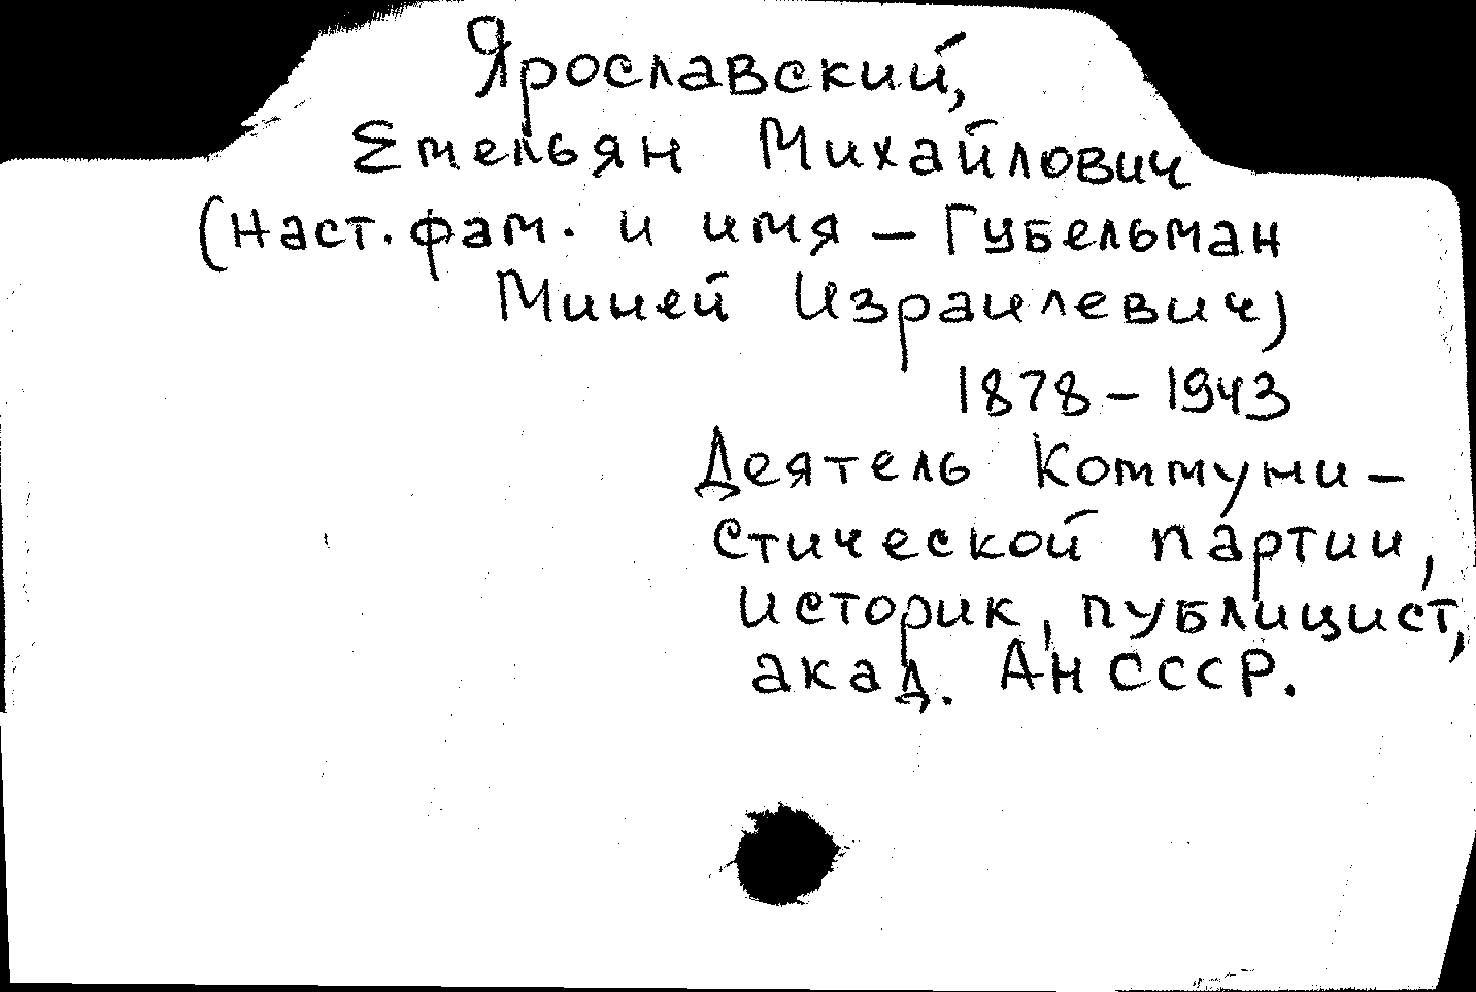 Ярославский,
Емельян Михайлович
(наст. фам. и имя – Губельман
Миней Израилевич)
1878 – 1943
Деятель Коммуни-
стической партии,
историк, публицист,
акад. АН СССР.